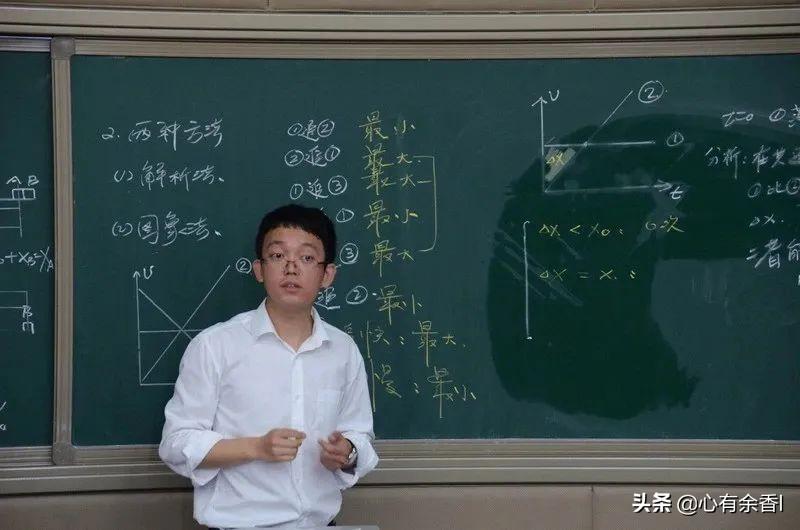 A B
2. 两种方法
(1) 解析法.
(2) 图象法.
υ
②
①追② 最小
②追① 最大
①追③ 最大
① 最小
③ 最大
追② 最小
快:最大.
慢:最小
υ
②
①
Δx
t
Δx < x₀: 0次
Δx = x₀:
t=0 ①
分析:在
①比②
Δx
二者
头条 @心有余香l